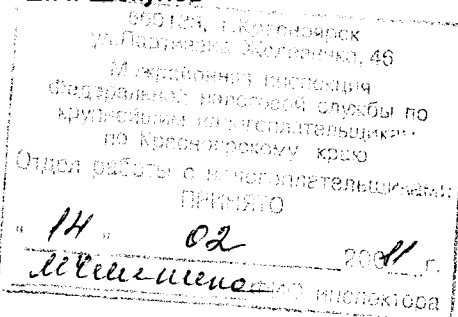 г. Красноярск
ул. Партизана Железняка, 46
Межрайонная инспекция
Федеральной налоговой службы по
крупнейшим налогоплательщикам
по Красноярскому краю
Отдел работы с налогоплательщиками
ПРИНЯТО
" 14 " 02 2011 г.
ФИО инспектора